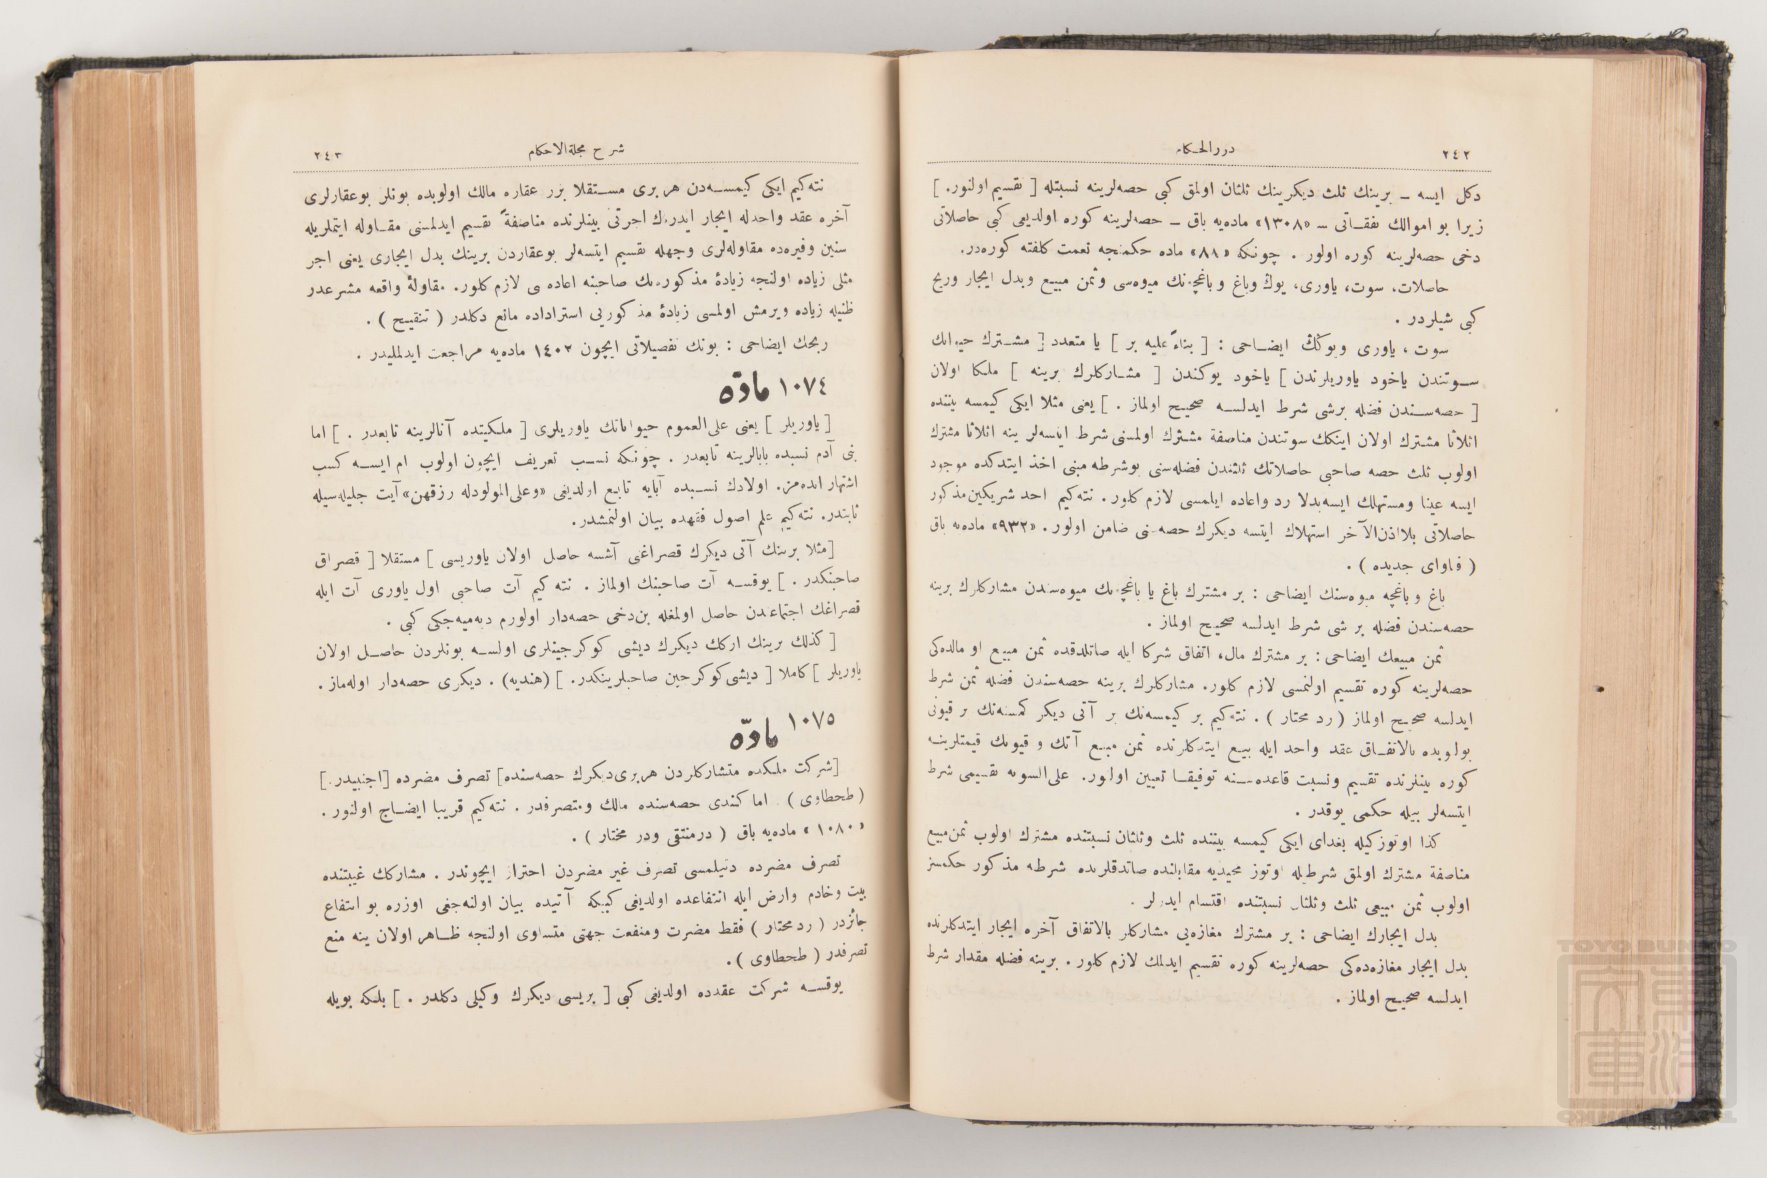 ٢٤٢
دررالحكام
دكل ايسه ـ برينك ثلث ديكرينك ثلثان اولمق كبى حصه‌لرينه نسبتله [ تقسيم اولنور. ]
زيرا بو اموالك نفقاتى ـ «١٣٠٨» ماده‌يه باق ـ حصه‌لرينه كوره اولديغى كبى حاصلاتى
دخى حصه‌لرينه كوره اولور . چونكه «٨٨» ماده حكمنجه نعمت كلفته كوره‌در.
حاصلات، سوت، ياورى، يوك وباغ وباغچه‌نك ميوه‌سى وثمن مبيع وبدل ايجار وربح
كبى شيلردر .
سوت ، ياورى ويوكك ايضاحى : [ بناءً عليه بر ] يا متعدد [ مشترك حيوانك
سوتندن ياخود ياوريلرندن ] ياخود يوكندن [ مشاركلرك برينه ] ملكا اولان
[ حصه‌سندن فضله برشى شرط ايدلسه صحيح اولماز . ] يعنى مثلا ايكى كيمسه بيننده
اثلاثا مشترك اولان اينكك سوتندن مناصفة مشترك اولمسنى شرط ايتسه‌لر ينه اثلاثا مشترك
اولوب ثلث حصه صاحبى حاصلاتك ثلثندن فضله‌سنى بوشرطه مبنى اخذ ايتدكده موجود
ايسه عينا ومستهلك ايسه‌بدلا رد واعاده ايلمسى لازم كلور . نته‌كيم احد شريكين مذكور
حاصلاتى بلااذن‌الآخر استهلاك ايتسه ديكرك حصه‌سنى ضامن اولور . «٩٣٢» ماده‌يه باق
( فتاواى جديده ) .
باغ وباغچه ميوه‌سنك ايضاحى : بر مشترك باغ يا باغچه‌نك ميوه‌سندن مشاركلرك برينه
حصه‌سندن فضله بر شى شرط ايدلسه صحيح اولماز .
ثمن مبيعك ايضاحى : بر مشترك مال، اتفاق شركا ايله صاتلدقده ثمن مبيع او مالده‌كى
حصه‌لرينه كوره تقسيم اولنمسى لازم كلور. مشاركلرك برينه حصه‌سندن فضله ثمن شرط
ايدلسه صحيح اولماز ( رد محتار ) . نته‌كيم بر كيمسه‌نك بر آتى ديكر كمسه‌نك بر قيونى
بولوبده بالاتفاق عقد واحد ايله بيع ايتدكلرنده ثمن مبيع آتك و قيونك قيمتلرينه
كوره بينلرنده تقسيم ونسبت قاعده‌سنه توفيقا تعيين اولور. على‌السويه تقسيمى شرط
ايتسه‌لر بيله حكمى يوقدر .
كذا اوتوزكيله بغداى ايكى كيمسه بيننده ثلث وثلثان نسبتنده مشترك اولوب ثمن‌مبيع
مناصفة مشترك اولمق شرطيله اوتوز مجيديه مقابلنده صاتدقلرنده شرطه مذكور حكمسز
اولوب ثمن مبيعى ثلث وثلثان نسبتنده اقتسام ايدرلر .
بدل ايجارك ايضاحى : بر مشترك مغازه‌يى مشاركلر بالاتفاق آخره ايجار ايتدكلرنده
بدل ايجار مغازه‌ده‌كى حصه‌لرينه كوره تقسيم ايدلمك لازم كلور . برينه فضله مقدار شرط
ايدلسه صحيح اولماز .
شرح مجلةالاحكام
٢٤٣
نته‌كيم ايكى كيمسه‌دن هربرى مستقلا برر عقاره مالك اولوبده بونلر بوعقارلرى
آخره عقد واحدله ايجار ايدرك اجرتى بينلرنده مناصفةً تقسيم ايدلمسنى مقاوله ايتملريله
سنين وفيره‌ده مقاوله‌لرى وجهله تقسيم ايتسه‌لر بوعقاردن برينك بدل ايجارى يعنى اجر
مثلى زياده اولنجه زيادۀ مذكوره‌نك صاحبنه اعاده‌سى لازم كلور. مقاولۀ واقعه مشرعدر
ظنيله زياده ويرمش اولمسى زيادۀ مذكوريى استرداده مانع دكلدر ( تنقيح ) .
ربحك ايضاحى : بونك تفصيلاتى ايچون ١٤٠٢ ماده‌يه مراجعت ايدلمليدر .
١٠٧٤ مادّه
[ ياوريلر ] يعنى على‌العموم حيواناتك ياوريلرى [ ملكيتده آنالرينه تابعدر . ] اما
بنى آدم نسبده بابالرينه تابعدر . چونكه نسب تعريف ايچون اولوب ام ايسه كسب
اشتهار ايده‌مز. اولادك نسبده آبايه تابع اولديغى «وعلى‌المولودله رزقهن» آيت جليله‌سيله
ثابتدر. نته‌كيم علم اصول فقهده بيان اولنمشدر.
[مثلا برينك آتى ديكرك قصراغى آشسه حاصل اولان ياوريسى ] مستقلا [ قصراق
صاحبنكدر . ] يوقسه آت صاحبنك اولماز . نته كيم آت صاحبى اول ياورى آت ايله
قصراغك اجتماعندن حاصل اولمغله بن‌دخى حصه‌دار اولورم ديه‌ميه‌جكى كبى .
[ كذلك برينك اركك ديكرك ديشى كوكرجينلرى اولسه بونلردن حاصل اولان
ياوريلر ] كاملا [ ديشى‌كوكرجين صاحبلرينكدر. ] (هنديه) . ديكرى حصه‌دار اوله‌ماز .
١٠٧٥ مادّه
[شركت ملكده متشاركلردن هربرى‌ديكرك حصه‌سنده] تصرف مضرده [اجنبيدر.]
( طحطاوى ) . اما كندى حصه‌سنده مالك ومتصرفدر . نته‌كيم قريبا ايضاح اولنور .
«١٠٨٠» ماده‌يه باق ( درمنتقى ودر مختار ) .
تصرف مضرده دنيلمسى تصرف غير مضردن احتراز ايچوندر . مشاركك غيبتنده
بيت وخادم وارض ايله انتفاعده اولديغى كبيكه آتيده بيان اولنه‌جغى اوزره بو انتفاع
جائزدر ( رد محتار ) فقط مضرت ومنفعت جهتى متساوى اولنجه ظاهر اولان ينه منع
تصرفدر ( طحطاوى ) .
يوقسه شركت عقدده اولديغى كبى [ بريسى ديكرك وكيلى دكلدر . ] بلكه بويله
TOYO BUNKO